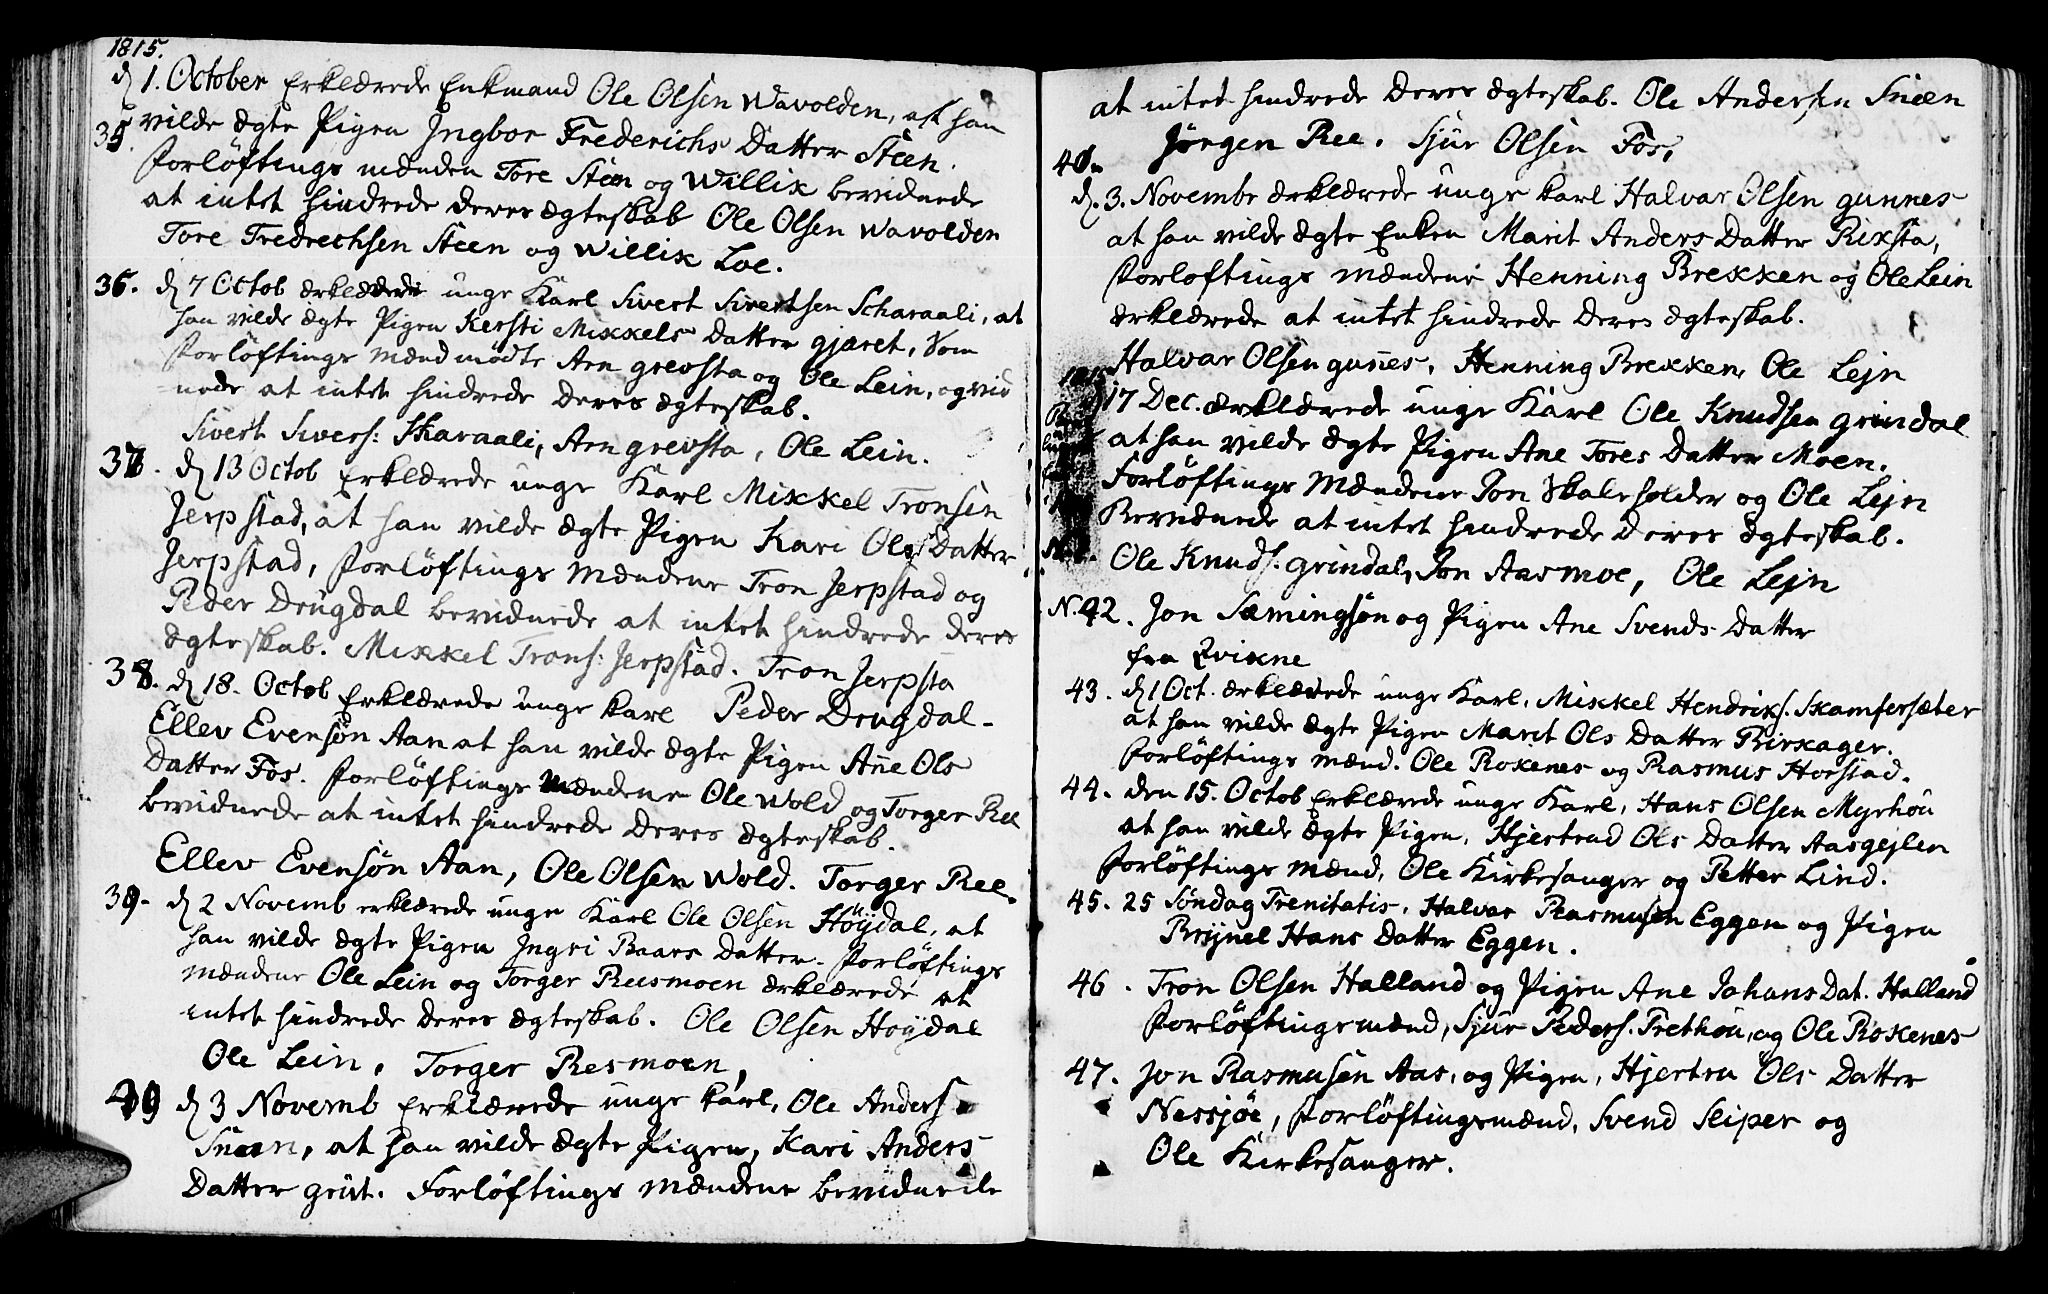 1815.
d 1. October Erklærede Enkmand Ole Olsen Wavolden, at han
35. vilde ægte Pigen Ingbor Frederichs Datter Steen.
Forlöftings mænden Tore Steen og Willix bevidnede
at intet hindrede deres ægteskab Ole Olsen Wavolden
Tore Fredrechsen Steen og Willix Loe.
36. d 7 Octob ærklærede unge Karl Sivert Sivertsen Scharaali, at
han vilde ægte Pigen Kersti Mikkels Datter gjæret, Som
Forlöftings mænd mødte Arn grevsta og Ole Lein, og vid
nede at intet hindrede deres ægteskab.
Sivert Sivers: Skaraali, Arn grevsta, Ole Lein.
37. d 13 Octob Erklærede unge Karl Mikkel Tronsen
Jerpstad, at han vilde ægte Pigen Kari Ols Datter
Jerpstad, Forlöftings mændene Tron Jerpstad og
Peder Drugdal bevidnede at intet hindrede deres
ægteskab. Mikkel Trons: Jerpstad. Tron Jerpsta
38. d 18. Octob Erklærede unge karl Peder Drugdal-
Ellev Evensön Aan at han vilde ægte Pigen Ane Ols
Datter Fos. Forlöftings mændene Ole Wold og Torger Ree
bevidnede at intet hindrede deres ægteskab.
Ellev Evensön Aan, Ole Olsen Wold. Torger Ree
39. d 2 Novemb erklærede unge Karl Ole Olsen Höydal, at
han vilde ægte Pigen Ingri Baars Datter. Forlöftings
mændene Ole Lein og Torger Reesmoen ærklærede at
intet hindrede deres ægteskab. Ole Olsen Hoydal
Ole Lein, Torger Resmoen,
d 3 Novemb Erklærede unge karl, Ole Anders
Sneen, at han vilde ægte Pigen, Kari Anders
Datter grüt. Forlöftings mændene bevidnede
at intet hindrede deres ægteskab. Ole Andersen Sneen
Jørgen Ree. Sjur Olsen Fos,
40.
d. 3. Novembr ærklærede unge karl Halvar Olsen gunnes
at han vilde ægte Enken Marit Anders Datter Rixsta,
Forloftings mændene Henning Brekken og Ole Lein
ærklærede at intet hindrede deres ægteskab.
Halvar Olsen gunnes, Henning Brekken, Ole Lejn
17 Dec. ærklærede unge Karl Ole Knudsen grindal
at han vilde ægte Pigen Ane Tores Datter Moen.
Forlöftings mændene Jon Skaleholder og Ole Lejn
Bevidnede at intet hindrede deres ægteskab.
Ole Knuds. grindal, Jon Aasmoe, Ole Lejn
N. 42. Jon Sæmingsøn og Pigen Ane Svends Datter
fra Qvikne
43. d 1 Oct. ærklærede unge Karl, Mikkel Hendriks. Skamfersæter
at han vilde ægte Pigen Marit Ols Datter Birkager.
Forlöftings mænd. Ole Rokenes og Rasmus Horstad.
44. den 15. Octob Erklærede unge Karl, Hans Olsen Myrhou
at han vilde ægte Pigen, Hjertrud Ols Datter Aasgejlen
Forlöftings mænd, Ole Kirkesanger og Petter Lind.
45. 25 Söndag Trenitatis, Halvar Rasmusen Eggen og Pigen
Brynel Hans Datter Eggen.
46. Tron Olsen Halland og Pigen Ane Johans Dat. Halland
Forlöftings mænd, Sjur Peders. Prethou, og Ole Rokenes
47. Jon Rasmusen Aas, og Pigen, Hjertru Ols Datter
Nessjöe, Forlöftingsmænd, Svend Seiper og
Ole Kirkesanger.